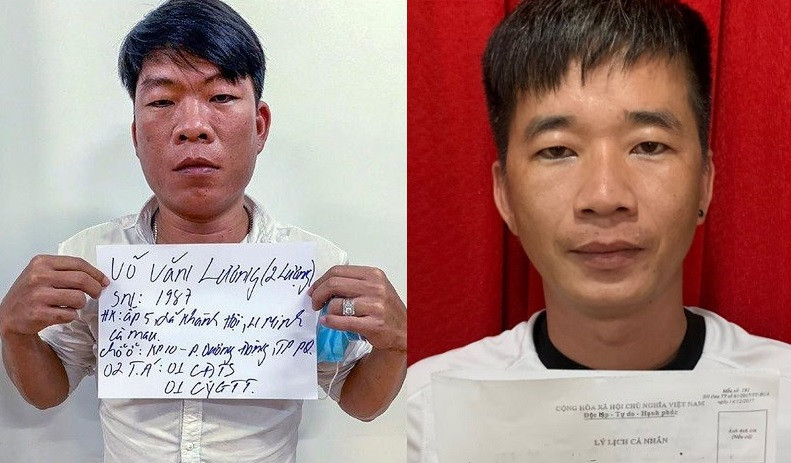 Võ Văn Lượng (2 Lượng)
SN: 1987
HK: ấp 5 xã Khánh Hội, U Minh
Cà Mau.
chỗ ở: KP10 - P. Dương Đông, TP PQ.
02 T.A: 01 CATS
01 CYGTT.
CỘNG HÒA XÃ HỘI CHỦ NGHĨA VIỆT NAM
Độc lập - Tự do - Hạnh phúc
LÝ LỊCH CÁ NHÂN
Mẫu số